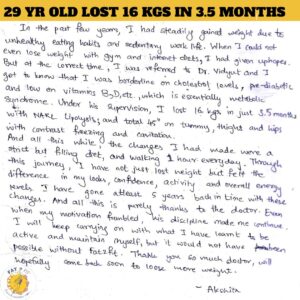 29 YR OLD LOST 16 KGS IN 3.5 MONTHS
In the past few years, I had steadily gained weight due to
unhealthy eating habits and sedentary work life. When I could not
even lose weight with gym and internet diets, I had given up hopes.
But at the correct time, I was referred to Dr. Vidyut and I
got to know that I was borderline on cholesterol levels, pre-diabetic
and low on vitamins B12, D3, etc., which is essentially metabolic
Syndrome. Under his supervision, I lost 16 kgs in just 3.5 months
with Lipolysis, and total 45" on tummy, thighs and hips
with contrast freezing and cavitation.
And all this while, the changes I had made were a
strict but filling diet, and walking 1 hour everyday. Through
this journey, I have not just lost weight but felt the
difference in my looks, confidence, activity and overall energy
levels. I have gone atleast 5 years back in time with these
changes. And all this is purely thanks to the doctor. Even
when my motivation fumbled, his discipline made me continue.
I will keep carrying on with what I have learnt to be
active and maintain myself, but it would not have been
possible without Thank you so much doctor, will
hopefully come back soon to loose more weight.
- Akshita